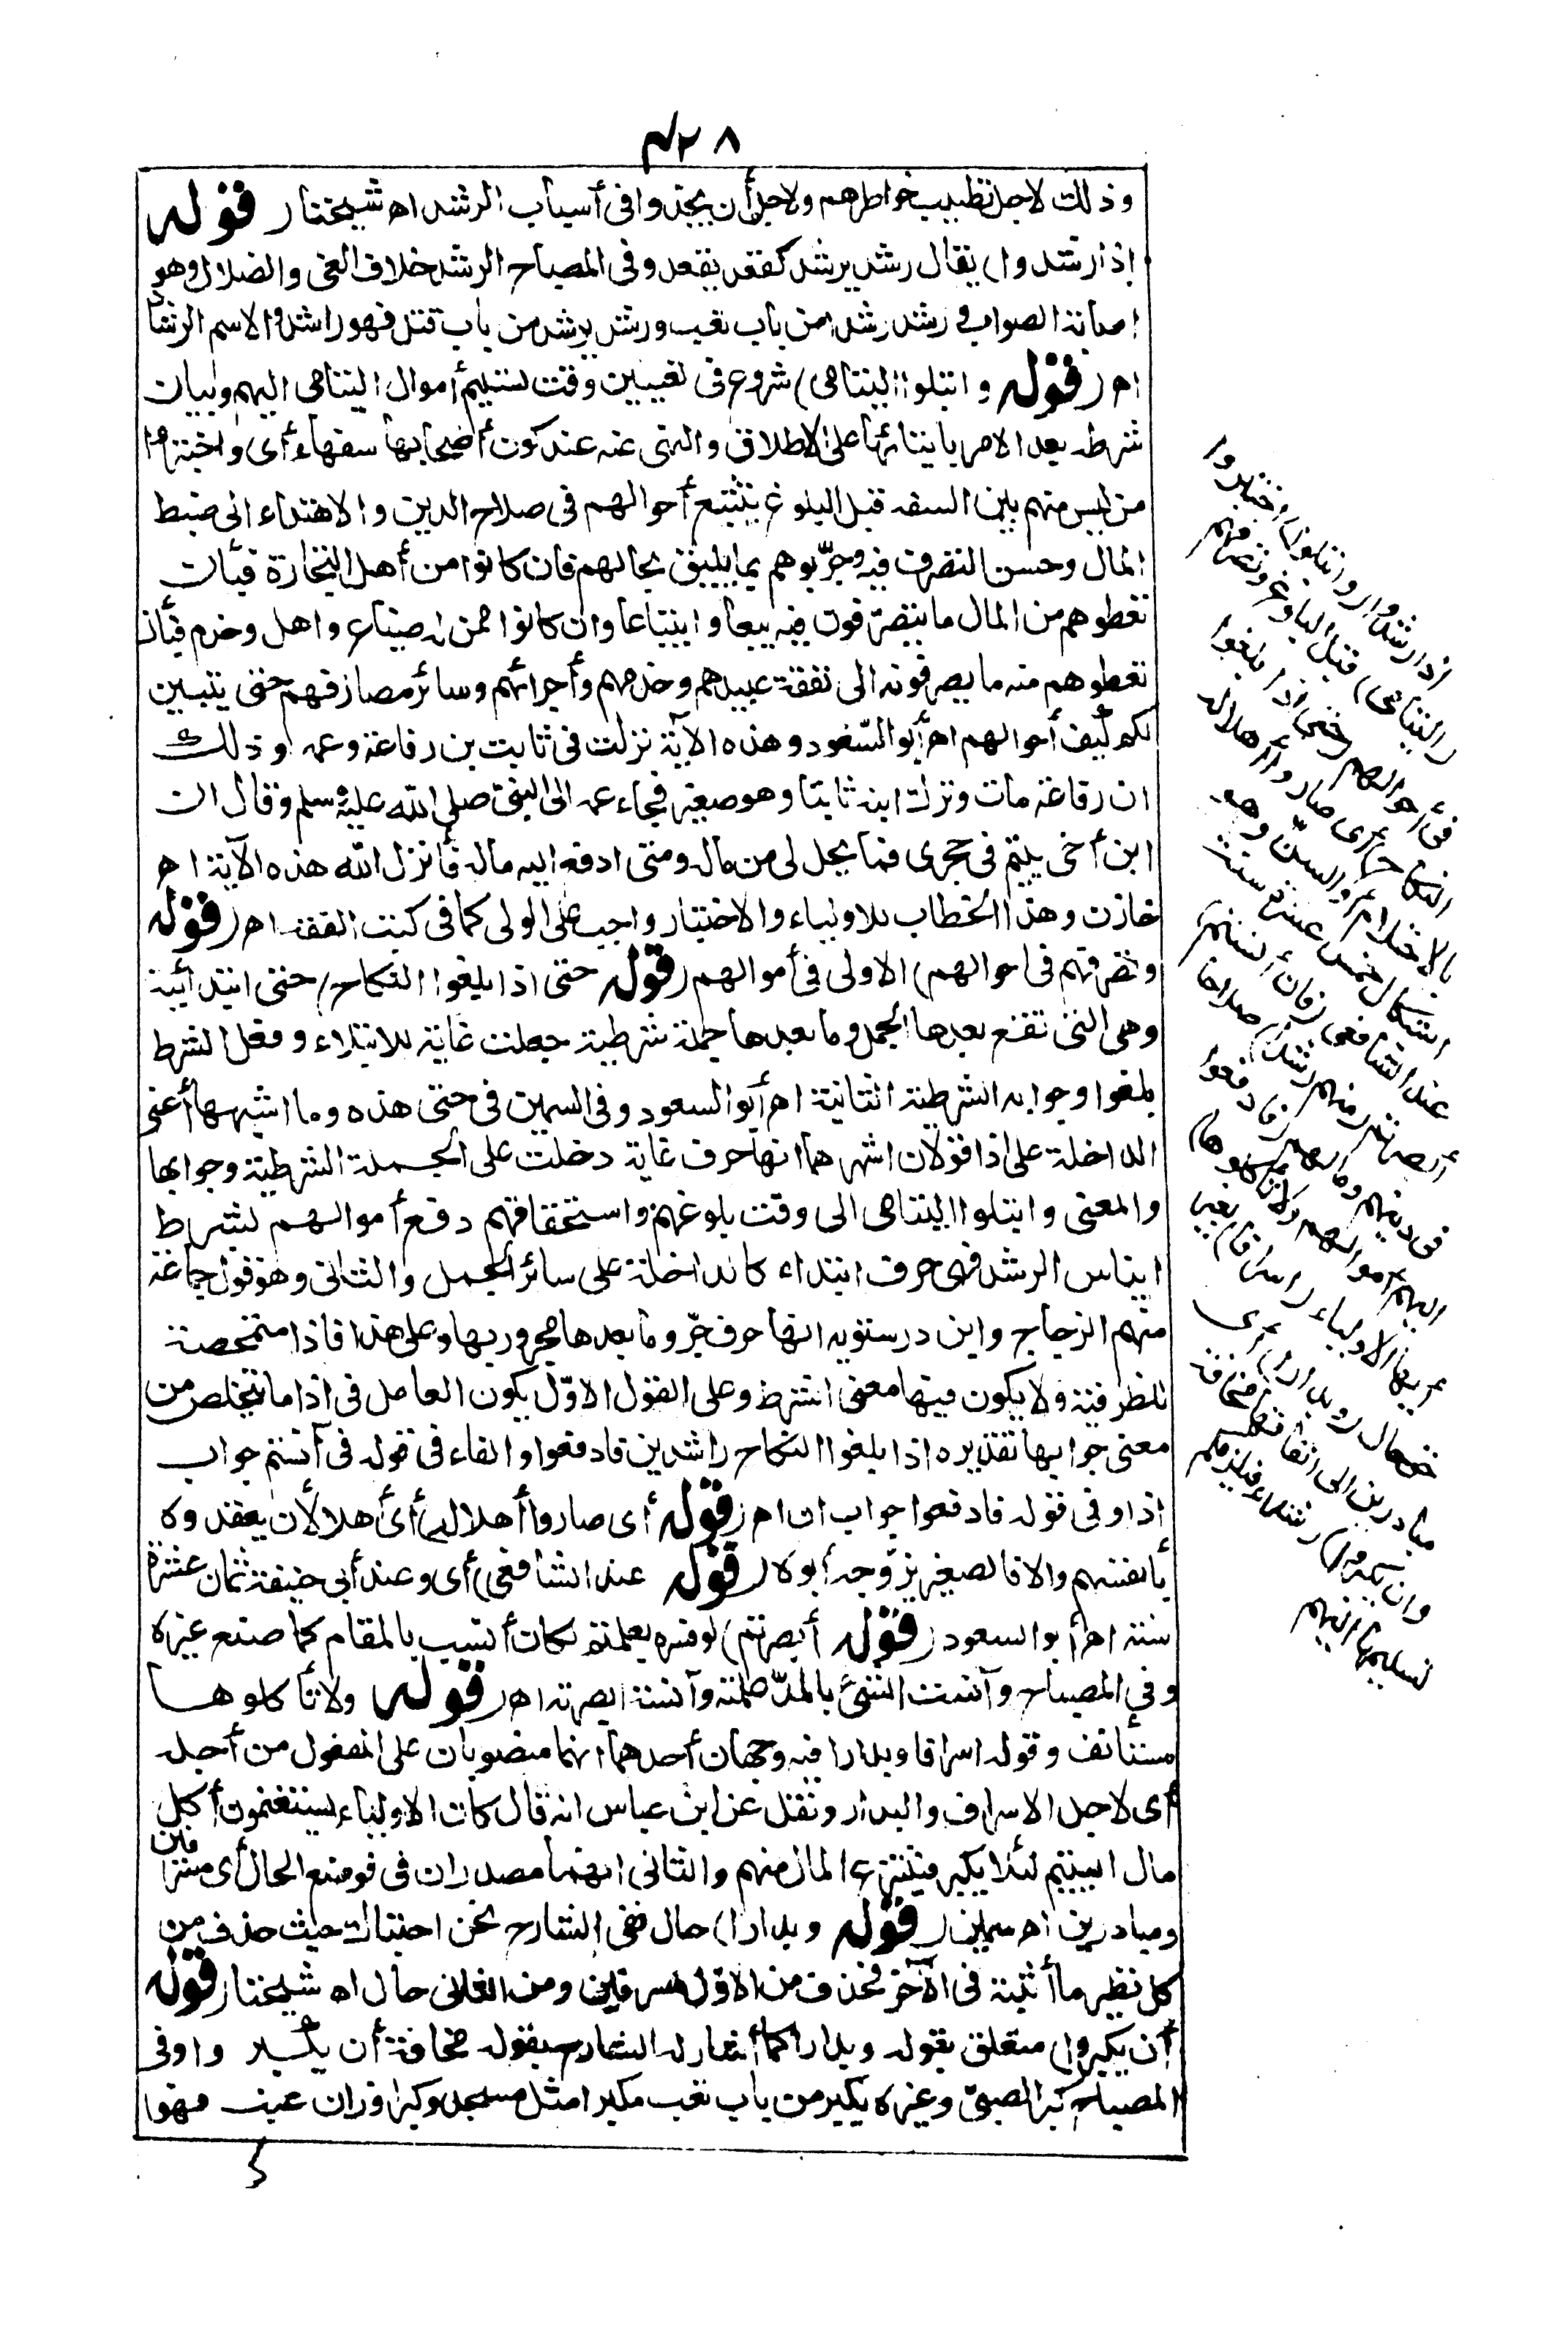 ٤٢٨
وذلك لاجل تطييب خواطرهم ولاجل أن يجدوا فى أسباب الرشد اه شيخنا (قوله
إذا رشدوا) يقال رشد يرشد كقعد يقعد وفى المصباح الرشد خلاف الغى والضلال وهو
إصابة الصواب ورشد رشدا من باب تعب ورشد يرشد من باب قتل فهو راشد والاسم الرشاد
اه (قوله وابتلوا اليتامى) شروع فى تعيين وقت تسليم أموال اليتامى اليهم وبيان
شرطه بعد الامر بايتائها على الاطلاق والنهى عنه عند كون أصحابها سفهاء أى واختبروا
من ليس منهم بين السفه قبل البلوغ بتتبع أحوالهم فى صلاح الدين والاهتداء الى ضبط
المال وحسن التصرف فيه وجرّبوهم بما يليق بحالهم فان كانوا من أهل التجارة فبأن
تعطوهم من المال ما يتصرّفون فيه بيعا وابتياعا وان كانوا ممن له ضياع واهل وخدم فبأن
تعطوهم منه ما يصرفونه الى نفقة عبيدهم وخدمهم وأجرائهم وسائر مصارفهم حتى يتبين
لكم كيف أحوالهم اه أبو السّعود وهذه الآية نزلت فى ثابت بن رفاعة وعمه وذلك
ان رفاعة مات وترك ابنه ثابتا وهو صغير فجاء عمه الى النبىّ صلى الله عليه وسلم وقال ان
ابن أخى يتيم فى حجرى فما يحل لى من ماله ومتى ادفع اليه ماله فأنزل الله هذه الآية اه
خازن وهذا الخطاب للاولياء والاختبار واجب على الولى كما فى كتب الفقه اه (قوله
وتصرفهم فى احوالهم) الاولى فى أموالهم (قوله حتى اذا بلغوا النكاح) حتى ابتدائية
وهى التى تقع بعدها الجمل وما بعدها جملة شرطية جعلت غاية للابتلاء وفعل الشرط
بلغوا وجوابه الشرطية الثانية اه أبو السعود وفى السمين فى حتى هذه وما اشبهها أعنى
الداخلة على اذا قولان اشهرهما انها حرف غاية دخلت على الجملة الشرطية وجوابها
والمعنى وابتلوا اليتامى الى وقت بلوغهم واستحقاقهم دفع أموالهم بشرط
ايناس الرشد فهى حرف ابتداء كالداخلة على سائر الجمل والثانى وهو قول جماعة
منهم الزجاج وابن درستويه انها حرف جرّ وما بعدها مجرور بها وعلى هذا فاذا متمحضة
للظرفية ولا يكون فيها معنى الشرط وعلى القول الاوّل يكون العامل فى اذا ما يتخلص من
معنى جوابها تقديره اذا بلغوا النكاح راشدين فادفعوا والفاء فى قوله فى آنستم جواب
اذا وفى قوله فادفعوا جواب ان اه (قوله أى صاروا أهلا له) أى أهلا لأن يعقدوه
بأنفسهم والا فالصغير يزوّجه أبوه (قوله عند الشافعى) أى وعند أبى حنيفة ثمان عشرة
سنة اه أبو السعود (قوله أبصرتم) لو فسره بعلمتم لكان أنسب بالمقام كما صنع غيره
وفى المصباح وآنست الشئ بالمدّ علمته وآنسته ابصرته اه (قوله ولا تأكلوها
مستأنف وقوله اسرافا وبدارا فيه وجهان أحدهما انهما منصوبان على المفعول من أجله
أى لاجل الاسراف والبدار ونقل عن ابن عباس انه قال كان الاولياء يستغنمون أكل
مال اليتيم لئلا يكبر فينتزع المال منهم والثانى انهما مصدران فى موضع الحال أى مسرفين
ومبادرين اه سمين (قوله وبدارا) حال ففى الشارح نحن احتباك حيث حذف من
كل نظير ما أثبته فى الآخر فحذف من الاوّل مسرفين ومن الثانى حال اه شيخنا (قوله
أن يكبروا) متعلق بقوله وبدارا كما أشار له الشارح بقوله مخافة أن يكبروا وفى
المصباح كبر الصبىّ وغيره يكبر من باب تعب مكبرا مثل مسجد وكبرا وزان عنب فهو
اذا رشدوا (وابتلوا) اختبروا
(اليتامى) قبل البلوغ وتصرفهم
فى أحوالهم (حتى اذا بلغوا
النكاح) أى صاروا أهلا له
بالاحتلام أو السنّ وهو
استكمال خمس عشرة سنة
عند الشافعى (فان آنستم)
أبصرتم (منهم رشدا) صلاحا
فى دينهم ومالهم (فادفعوا
اليهم أموالهم ولا تأكلوها)
أيها الاولياء (اسرافا) بغير
حق حال (وبدارا) أى
مبادرين الى انفاقها مخافة
(ان يكبروا) رشداء فيلزمكم
تسليمها اليهم